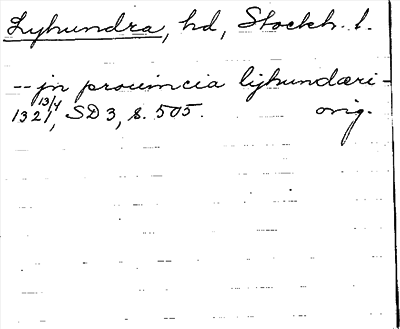 Lyhundra, hd, Stockh. l.
-- jn prouincia lijhundæri -
1321 13/4, SD 3, s. 505. orig.